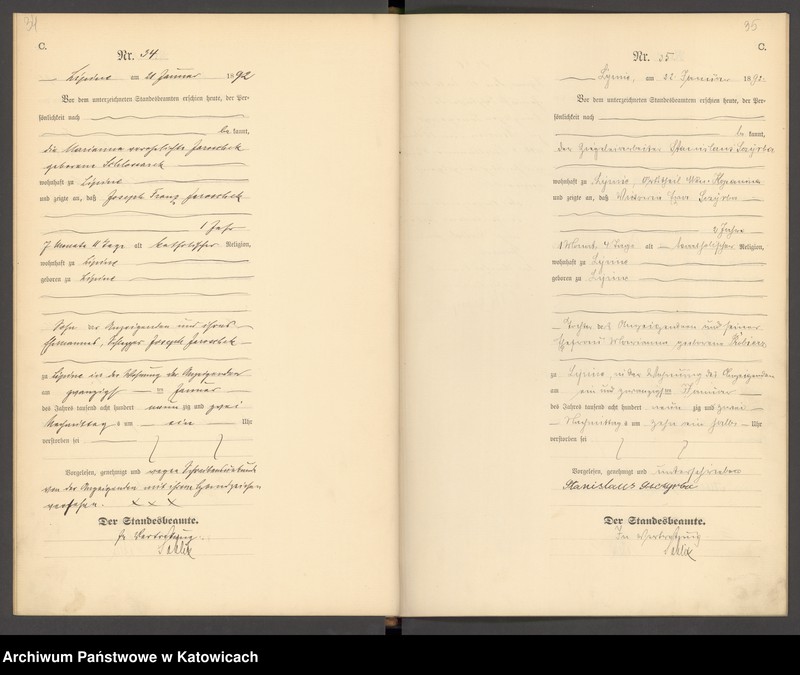 34
C.
Nr. 34
Lipine am 21 Januar 1892
Vor dem unterzeichneten Standesbeamten erschien heute, der Per-
sönlichkeit nach
be kannt,
die Marianna verehelichte
geborene
wohnhaft zu Lipine
und zeigte an, daß Joseph Franz
1 Jahr
7 Monate 11 Tage alt katholischer Religion,
wohnhaft zu Lipine
geboren zu Lipine
Sohn der Anzeigenden und ihres
Ehemannes, Joseph
zu Lipine in der Wohnung der Anzeigenden
am zwanzigst en Januar
des Jahres tausend acht hundert neun zig und zwei
Nachmittag s um ein Uhr
verstorben sei
Vorgelesen, genehmigt und wegen Schreibensunkunde
von der Anzeigenden mit ihrem Handzeichen
versehen. x x x
Der Standesbeamte.
In Vertretung.
35
C.
Nr. 35
Lipine, am 22 Januar 1892
Vor dem unterzeichneten Standesbeamten erschien heute, der Per-
sönlichkeit nach
be kannt,
der Ziegelarbeiter Stanislaus
wohnhaft zu Lipine, Ortstheil
und zeigte an, daß
2 Jahre
1 Monat, 4 Tage alt katholischer Religion,
wohnhaft zu Lipine
geboren zu Lipine
Tochter des Anzeigenden und seiner
Ehefrau Marianna geborene
zu Lipine, in der Wohnung des Anzeigenden
am ein und zwanzigst en Januar
des Jahres tausend acht hundert neun zig und zwei
Nachmittag s um zehn ein halb Uhr
verstorben sei
Vorgelesen, genehmigt und unterschrieben
Stanislaus
Der Standesbeamte.
In Vertretung
Archiwum Państwowe w Katowicach